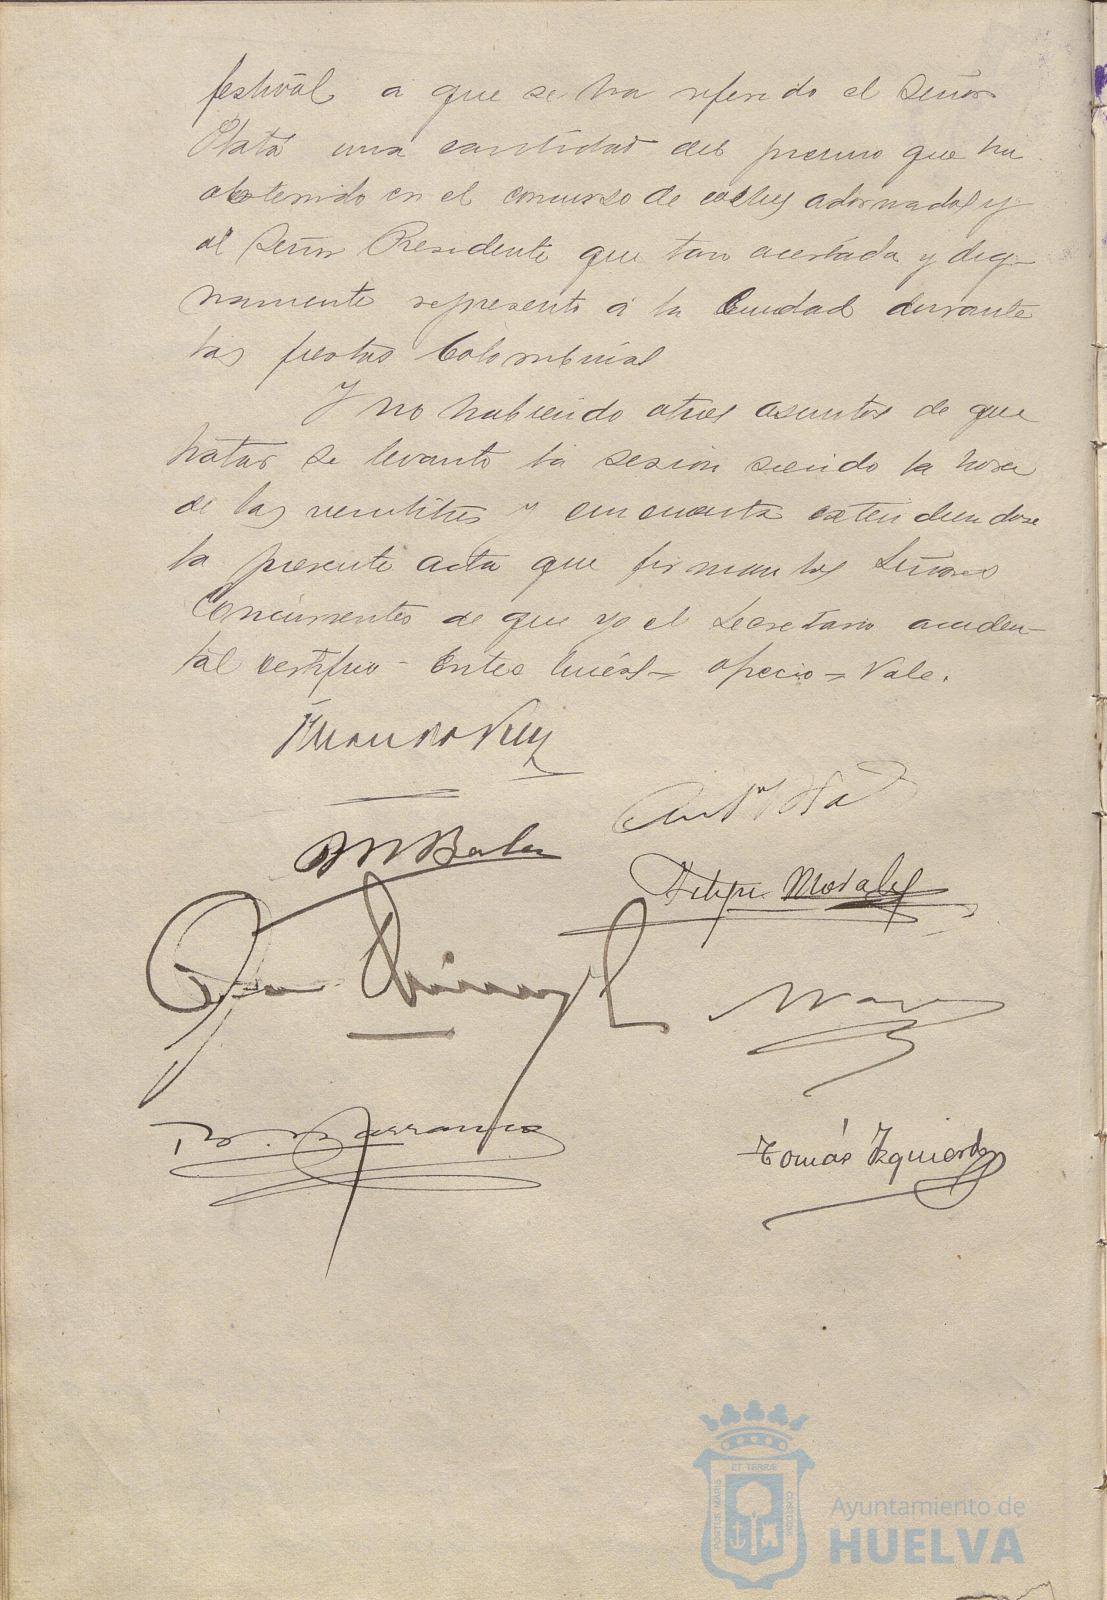 festival a que se ha referido el Señor
Plata una cantidad del premio que ha
obtenido en el concurso de coches adornados y
al Señor Presidente que tan acertada y dig-
namente represento á la Ciudad durante
las fiestas Colombinas
Y no habiendo otros asuntos de que
tratar se levanto la sesion siendo la hora
de las veintitres y cincuenta extendiendose
la presente acta que firman los Señores
Concurrentes de que yo el Secretario acciden-
tal certifico - Entre lineas = ofrecio = Vale.
Felipe Morales
Tomás Izquierdo
PORTUS MARIS ET TERRÆ CUSTODIA
Ayuntamiento de
HUELVA